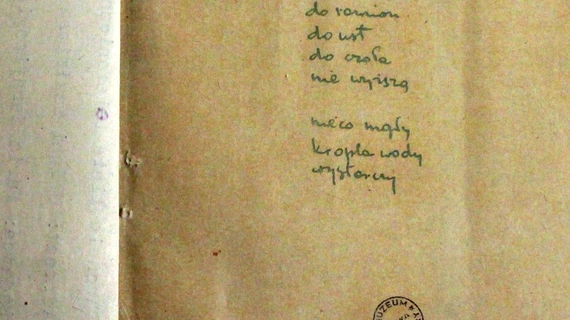 do ramion
do ust
do czoła
nie wyższą
nieco mgły
kropla wody
wystarczy
MUZEUM